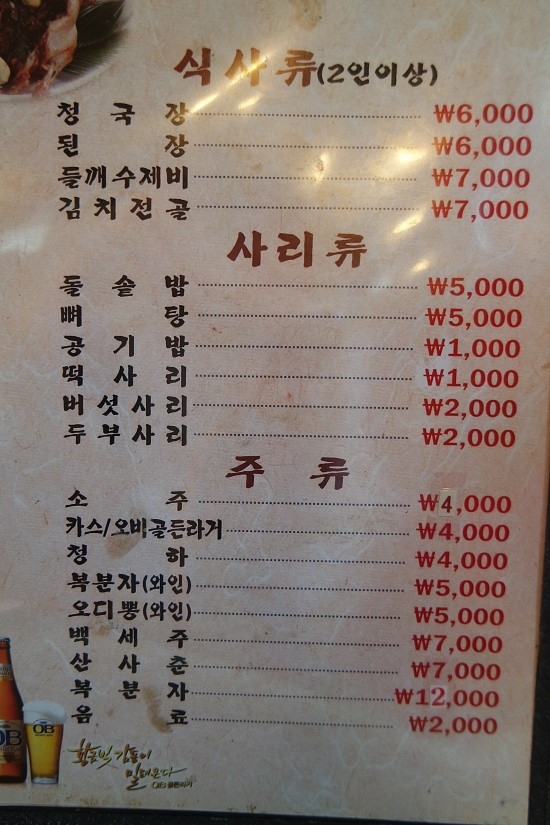 식사류(2인이상)
청국장 ₩6,000
된장 ₩6,000
들깨수제비 ₩7,000
김치전골 ₩7,000
사리류
돌솥밥 ₩5,000
뼈탕 ₩5,000
공기밥 ₩1,000
떡사리 ₩1,000
버섯사리 ₩2,000
두부사리 ₩2,000
주류
소주 ₩4,000
카스/오비골든라거 ₩4,000
청하 ₩4,000
복분자(와인) ₩5,000
오디뽕(와인) ₩5,000
백세주 ₩7,000
산사춘 ₩7,000
복분자 ₩12,000
음료 ₩2,000
OB
OB
황금빛 감동이
밀려온다